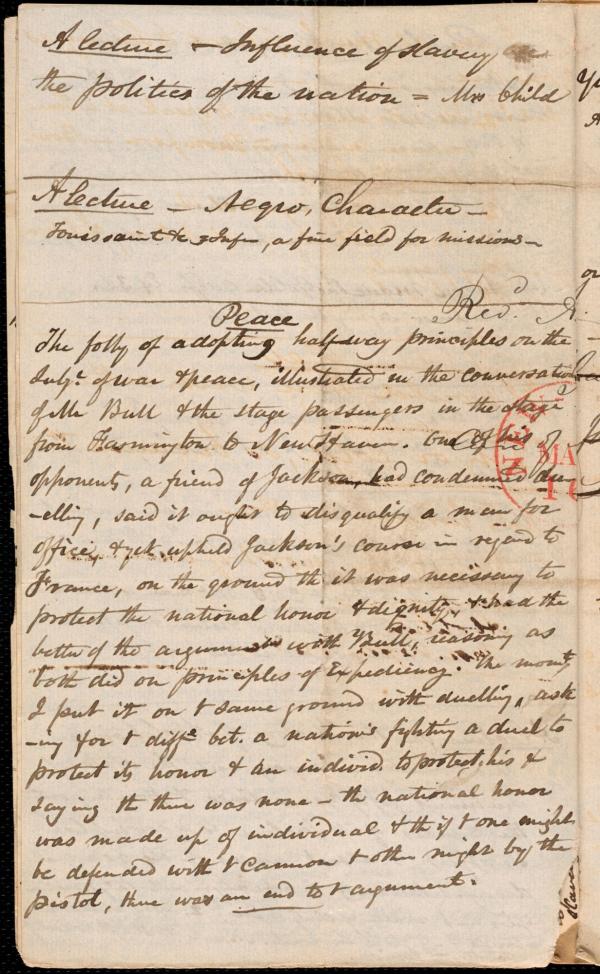 A lecture – Influence of slavery on
the politics of the nation = Mrs Child
A lecture – Negro, Character –
Toussaint &c , a fine field for missions –
Recd. A.
Peace
The folly of adopting half-way principles on the
Subjt. of war & peace, illustrated in the conversation
of Mr Bull & the stage passengers in the stage
from Farmington to New Haven. One of his
opponents, a friend of Jackson, had condemned du-
-elling, said it ought to disqualify a man for
office, & yet upheld Jackson's course in regard to
France, on the ground th it was necessary to
protect the national honor & dignity & had the
better of the argument with Bull, reasoning as
both did on principles of Expediency. The momt
I put it on t same ground with duelling, ask
-ing for t diffe bet. a nation's fighting a duel to
protect its honor & an individ. to protect his &
saying th there was none – th national honor
was made up of individual & th if t one might
be defended with t cannon t other might by the
pistol, there was an end to t argument.
MA